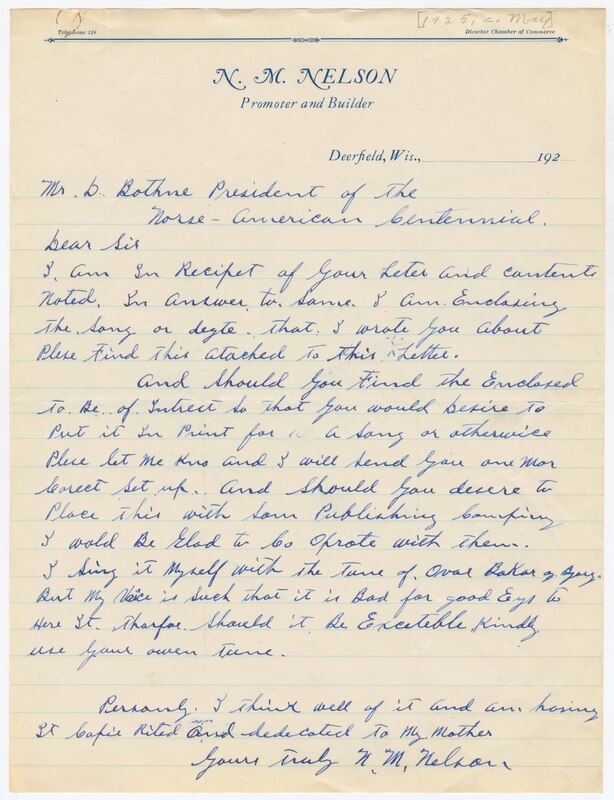 (1)
[1925, c. May]
Telephone 118
Director Chamber of Commerce
N. M. NELSON
Promoter and Builder
Deerfield, Wis., 192
Mr. D. Bothne President of the
Norse-American Centennial.
Dear Sir
I. am In Recipet of Your Leter and contents
Noted. In Answer to Same. I am Enclosing
the Song or degte. that. I wrote You About
Plese Find this atached to this Letter.
And Should You Find the Enclosed
to. Be. of. Intrest So that You would Desire to
Put it In Print for A Song or otherwice
Plese let Me Kno and I will Send You one Mor
Corect Set up. And Should You desere to
Place this with Som Publishing Compiny
I wold Be Glad to Co Oprote with them.
I Sing it Myself with the Tune of. Ovar Bakar og Bjarg.
But My Voice is Such that it is Bad for good Eys to
Here It. tharfor. Should it. Be Exceteble Kindly
use Your owen tune.
Personly. I think well of it and am having
It Copie Rited and dedecated to My Mother
Yours truly N. M. Nelson